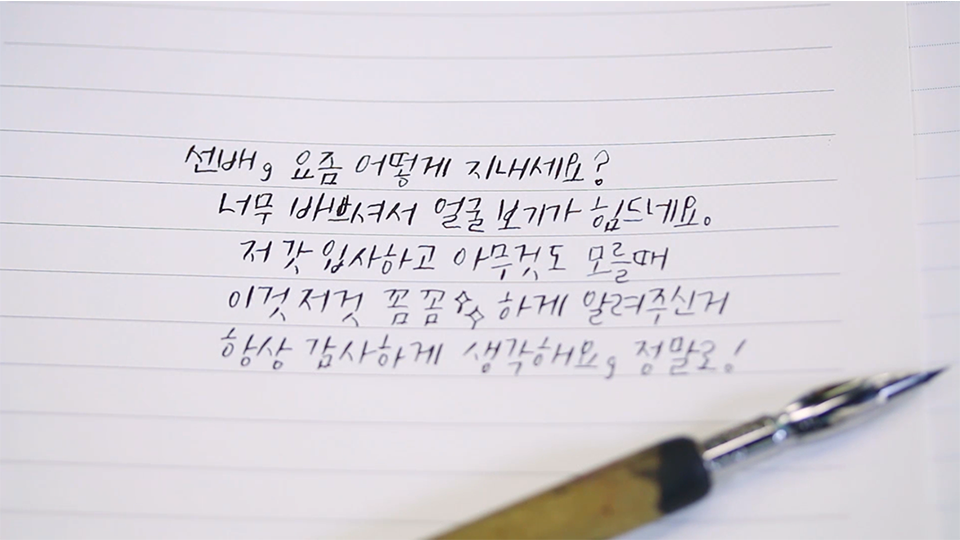 선배, 요즘 어떻게 지내세요?
너무 바쁘셔서 얼굴 보기가 힘드네요.
저 갓 입사하고 아무것도 모를때
이것저것 꼼꼼하게 알려주신거
항상 감사하게 생각해요, 정말로!